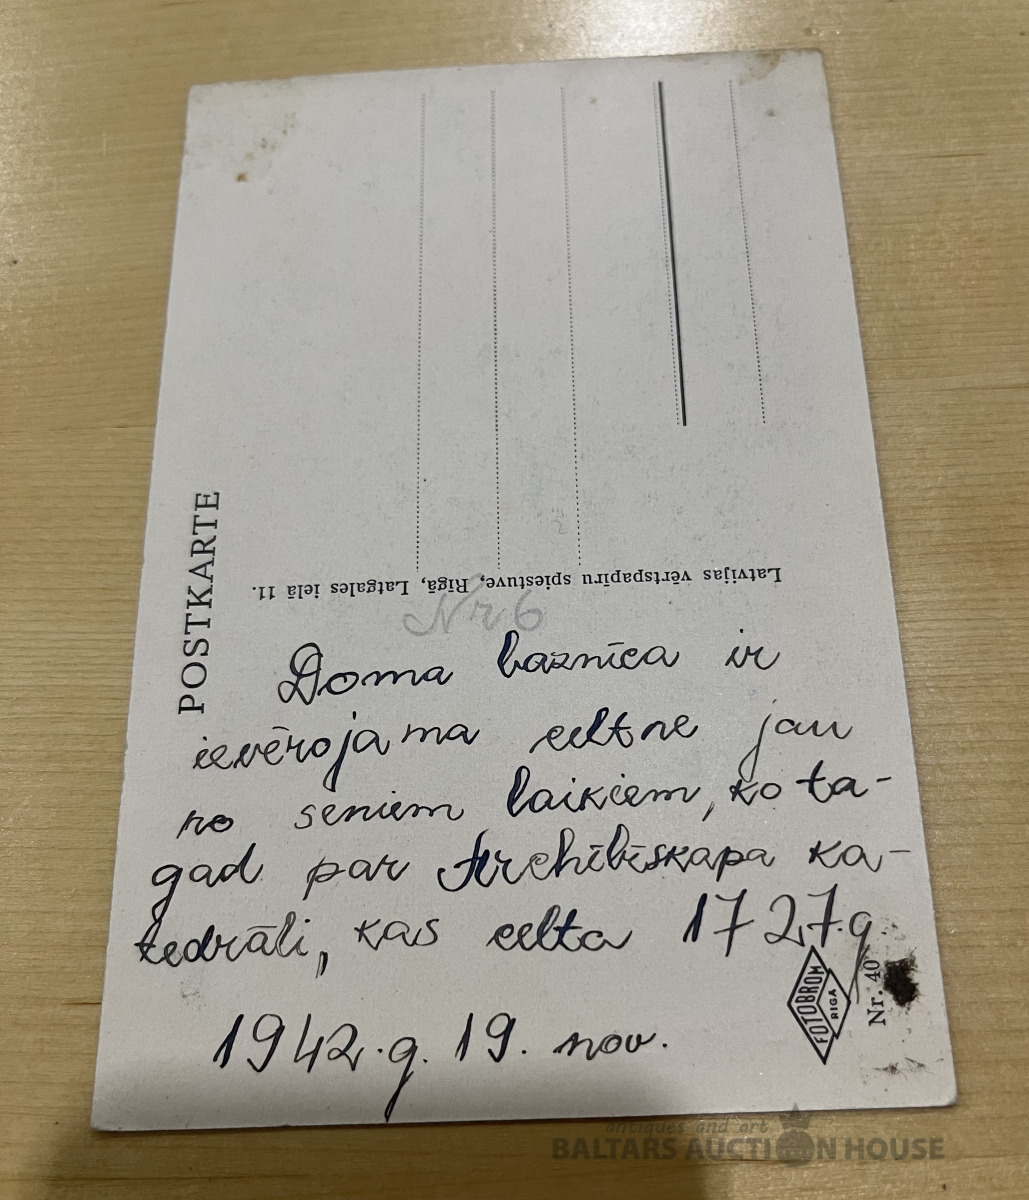 POSTKARTE
Latvijas vērtspapīru spiestuve, Rīgā, Latgales ielā 11.
Nr 6
Doma baznīca ir
ievērojama celtne jau
no seniem laikiem, ko ta-
gad par Archibīskapa ka-
tedrāli, kas celta 1727.g.
1942.g. 19. nov.
FOTOBROM
RIGA
Nr. 40
antiques and art
BALTARS AUCTION HOUSE